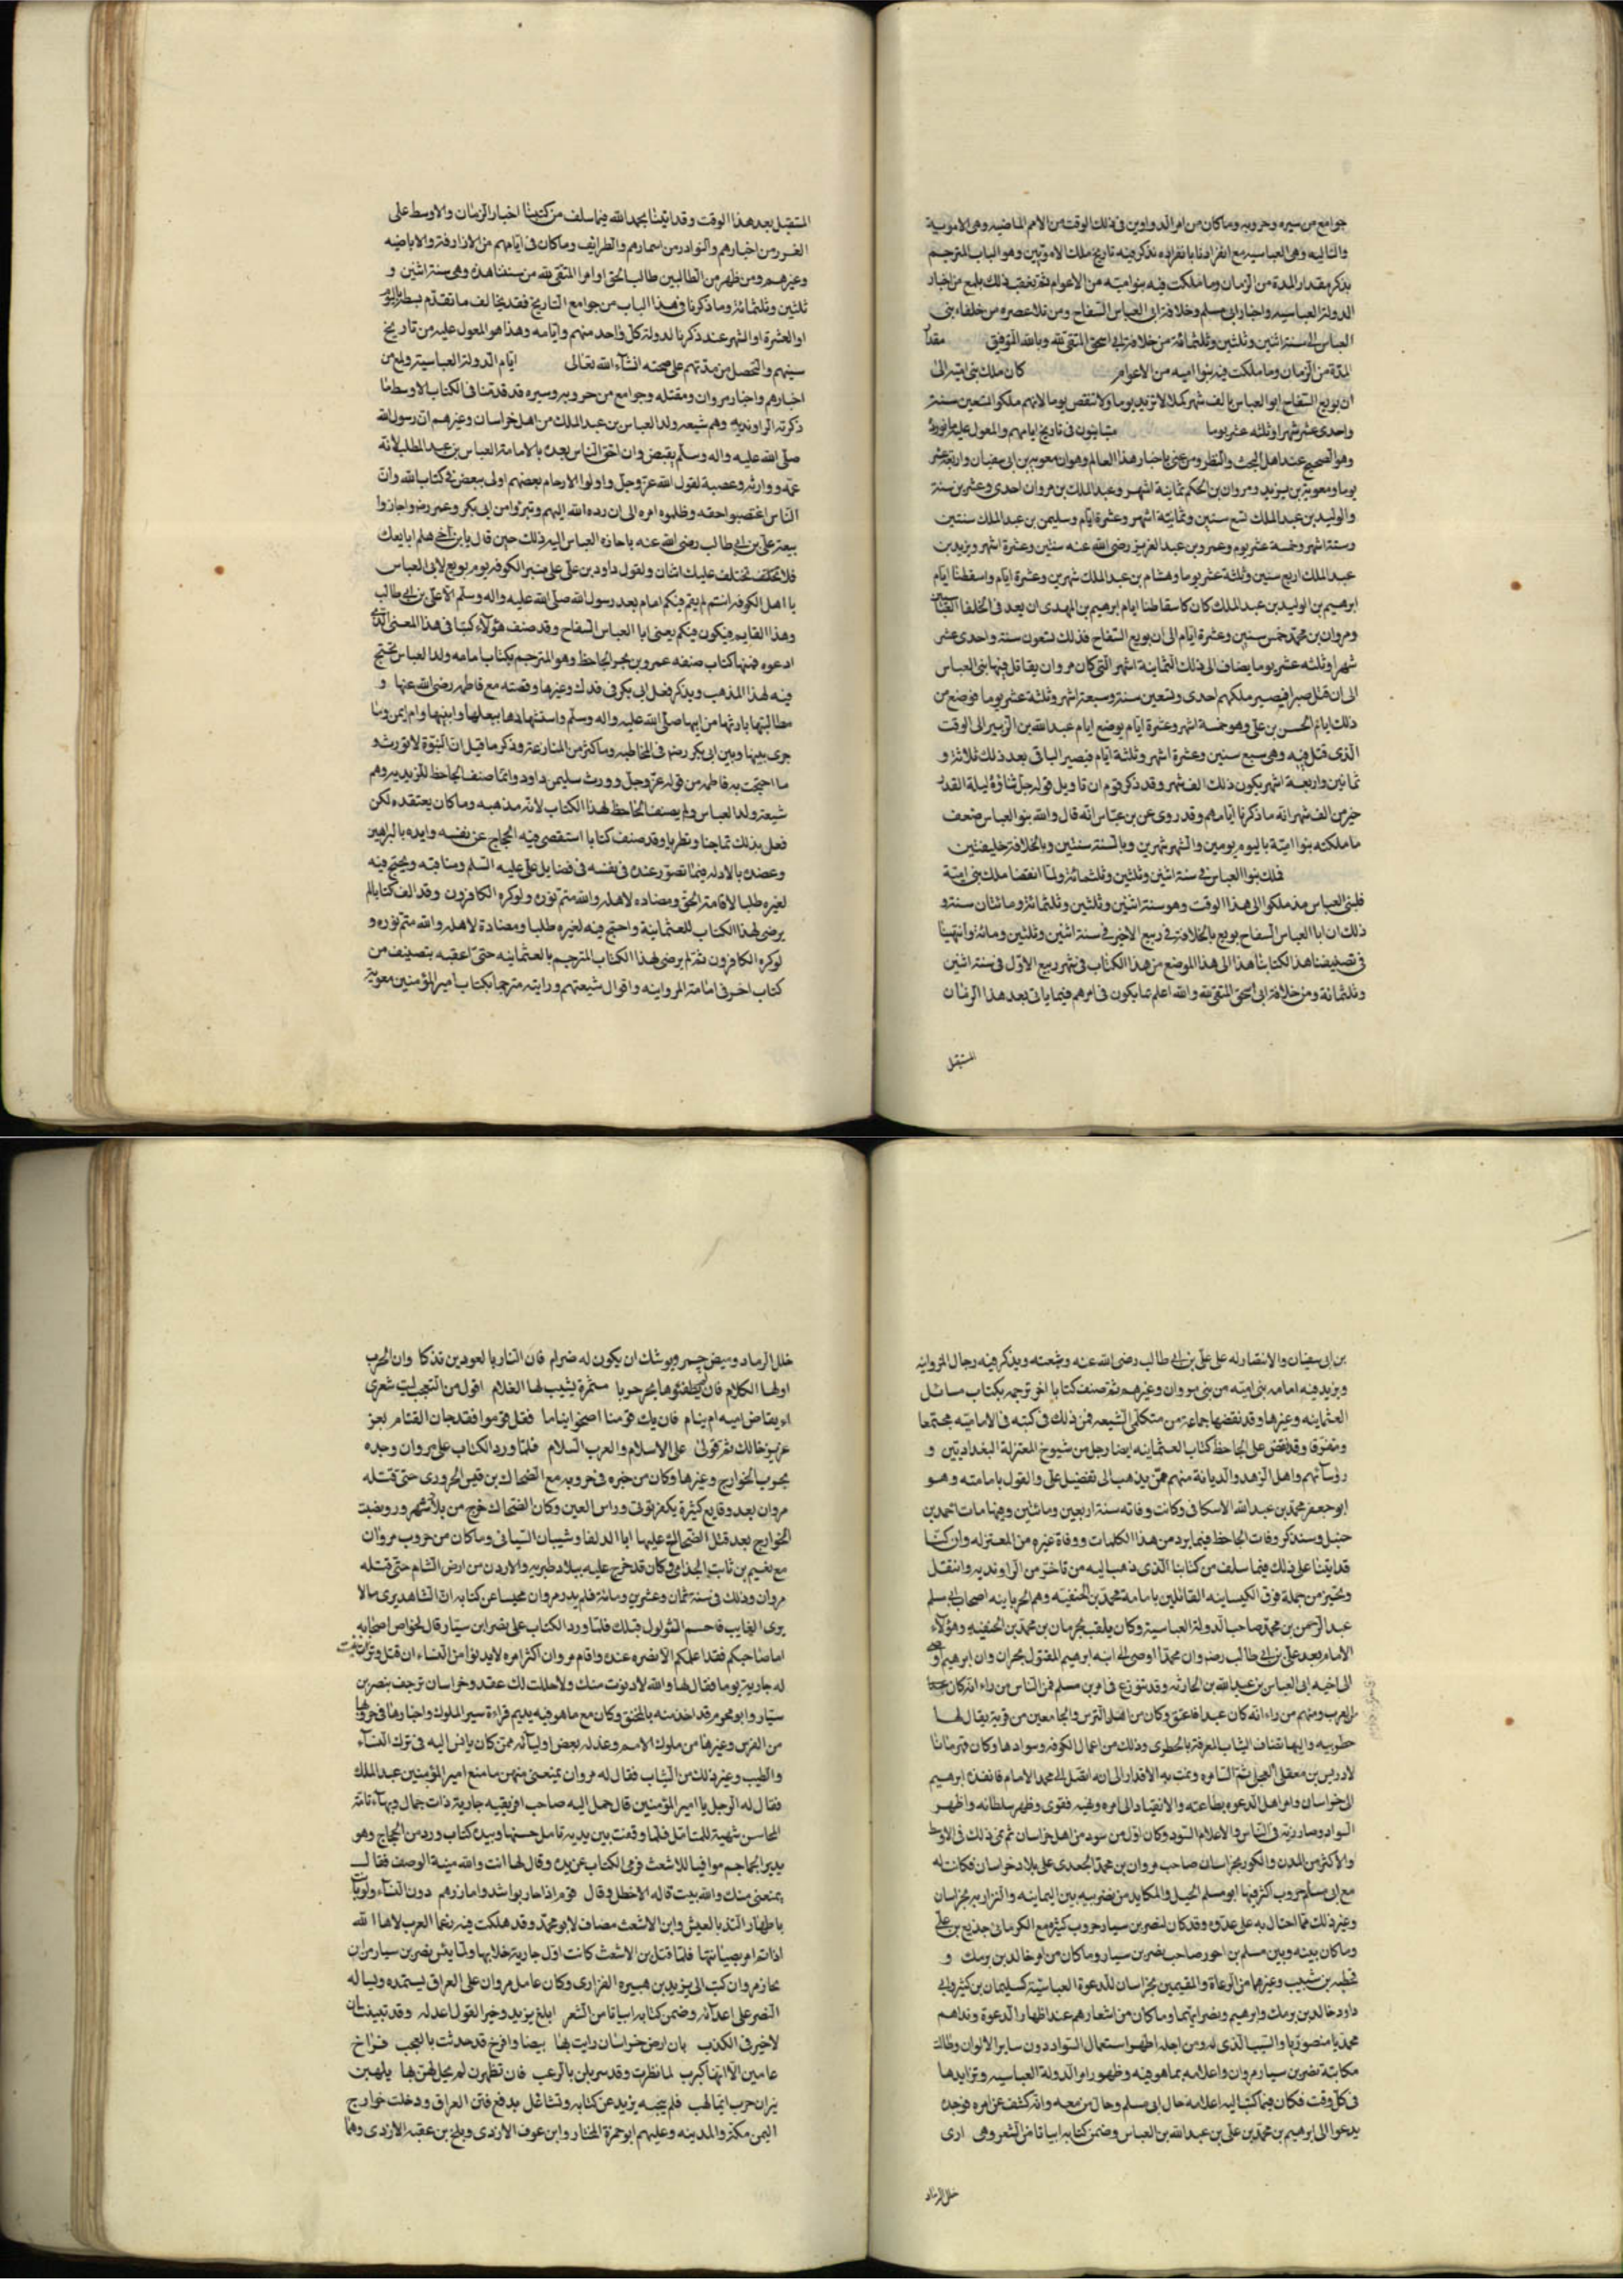 جوامع من سيره وحروبه وما كان من امر الدواوين في ذلك الوقت من الامم الماضيه وهي الاموية
والتاليه وهي العباسيه مع انفرادنا بابا نفرده نذكر فيه تاريخ ملك الامويين وهو الباب المترجم
بذكر مقدار المدة من الزمان وما ملكت فيه بنو اميه من الاعوام ثم نعقب ذلك بلمع من اخبار
الدولة العباسيه واخبار ابي مسلم وخلافة ابي العباس السفاح ومن تلا عصره من خلفاء بني
العباس الى سنة اثنين وثلثين وثلثمائة من خلافة ابي اسحق المتقي لله وبالله التوفيق مقدار
المدة من الزمان وما ملكت فيه بنوا اميه من الاعوام كان ملك بني امية الى
ان بويع السفاح ابو العباس بالف شهر كملا لا تزيد يوما ولا تنقص يوما لانهم ملكوا تسعين سنة
واحدى عشر شهرا وثلثه عشر يوما متباينون في تاريخ ايامهم والمعول على ما نورده
وهو الصحيح عند اهل البحث والنظر ومن عني باخبار هذا العالم وهو ان معويه بن ابي سفيان واربعة عشر
يوما ومعوية بن يزيد ومروان بن الحكم ثمانية اشهر وعبد الملك بن مروان احدى وعشرين سنة
والوليد بن عبد الملك تسع سنين وثمانية اشهر وعشرة ايام وسليمن بن عبد الملك سنتين
وستة اشهر وخمسة عشر يوم وعمرو بن عبد العزيز رضي الله عنه سنتين وعشرة اشهر ويزيد بن
عبد الملك اربع سنين وثلثة عشر يوما وهشام بن عبد الملك شهرين وعشرة ايام واسقطنا ايام
ابرهيم بن الوليد بن عبد الملك كان كاسقاطنا ايام ابرهيم بن المهدي ان يعد في الخلفا العباسيين
ومروان بن محمد خمس سنين وعشرة ايام الى ان بويع السفاح فذلك تسعون سنة واحدى عشر
شهرا وثلثه عشر يوما يضاف الى ذلك الثمانية اشهر التي كان مروان يقاتل فيها بني العباس
الى ان قتل صبرا فيصير ملكهم احدى وتسعين سنة وسبعة اشهر وثلثة عشر يوما فوضع من
ذلك ايام الحسن بن علي وهو خمسة اشهر وعشرة ايام يوضع ايام عبد الله بن الزبير الى الوقت
الذي قتل فيه وهي سبع سنين وعشرة اشهر وثلثة ايام فيصير الباقي بعد ذلك ثلاثة و
ثمانين واربعة اشهر يكون ذلك الف شهر وقد ذكر قوم ان تاويل قوله جل ثناؤه ليلة القدر
خير من الف شهر انه ما ذكرنا ايامهم وقد روى عن بن عباس انه قال والله بنو العباس ضعف
ما ملكته بنوا امية باليوم يومين والشهر شهرين وبالسنة سنتين وبالخلافة خليفتين
فملك بنوا العباس في سنة اثنين وثلثين وثلثمائة ولما انقضا ملك بني امية
فلبني العباس مذ ملكوا الى هذا الوقت وهو سنة اثنين وثلثين وثلثمائة ومائتان سنة و
ذلك ان ابا العباس السفاح بويع بالخلافة في ربيع الاخر في سنة اثنين وثلثين ومائة وانتهينا
في تصنيفنا هذا الكتابنا هذا الى هذا الموضع من هذا الكتاب في شهر ربيع الاول في سنة اثنين
وثلثمائة ومن خلافة ابي اسحق المتقي لله والله اعلم بما يكون في امرهم فيما ياتي بعد هذا الزمان
المستقبل
المستقبل بعد هذا الوقت وقد اتينا بحمد الله فيما سلف من كتبنا اخبار الزمان والاوسط على
الغرر من اخبارهم والنوادر من اسمارهم والطرايف وما كان في ايامهم من الازارقة والاباضيه
وغيرهم ومن ظهر من الطالبين طالب الحق او امرا المتقي لله من سنتنا هذه وهي سنة اثنين و
ثلثين وثلثمائة وما ذكرنا في هذا الباب من جوامع التاريخ فقد يخالف ما تقدم بسط اليوم
او العشرة او الشهر عند ذكرنا لدولة كل واحد منهم وايامه وهذا هو المعول عليه من تاريخ
سنيهم والتحصل من مدتهم على صحته انشاء الله تعالى ايام الدولة العباسية ولمع من
اخبارهم واخبار مروان ومقتله وجوامع من حروبه وسيره قد قدمنا في الكتاب الاوسط ما
ذكرته الراونديه وهم شيعه ولد العباس بن عبد الملك من اهل خراسان وغيرهم ان رسول الله
صلى الله عليه واله وسلم بقبض وان احق الناس بعده بالامامة العباس بن عبد المطلب لانه
عمه ووارثه وعصبة لقول الله عز وجل واولوا الارحام بعضهم اولى ببعض في كتاب الله وان
الناس اغتصبوا حقه وظلموه امره الى ان رده الله اليهم وتبروا من ابي بكر وعمر رض واجازوا
بيعة علي بن ابي طالب رضي الله عنه باجازه العباس اليه وذلك حين قال يا بن اخي هلم ابايعك
فلا يختلف عليك اثنان ولقول داود بن علي على منبر الكوفه يوم بويع لابي العباس
يا اهل الكوفه انتم لم يقم فيكم امام بعد رسول الله صلى الله عليه واله وسلم الا علي بن ابي طالب
وهذا القايم فيكون فيكم يعني ابا العباس السفاح وقد صنف هؤلاء كتبا في هذا المعنى الذي
ادعوه فمنها كتاب صنفه عمرو بن بحر الجاحظ وهو المترجم بكتاب امامه ولد العباس يحتج
فيه لهذا المذهب ويذكر فعل ابي بكر في فدك وغيرها وقصته مع فاطمه رضي الله عنها و
مطالبتها بارثها من ابيها صلى الله عليه واله وسلم واستشهادها ببعلها وابنيها وام ايمن وما
جرى بينها وبين ابي بكر رضه في المخاطبه وما كثر من المنازعة وذكر ما قيل ان النبوة لا تورث و
ما احتجت به فاطمه من قوله عز وجل وورث سليمن داود وانما صنف الجاحظ للزيديه وهم
شيعة ولد العباس ولم يصنف الجاحظ لهذا الكتاب لانه مذهبه وما كان يعتقده لكن
فعل بذلك تماجنا وتطربا وقد صنف كتابا استقصى فيه الحجاج عن نفسه وايده بالبراهين
وعضده بالادله فيما تصور عنده في نفسه في فضايل علي عليه السلم ومناقبه ويحتج فيه
لغيره طلبا لاقامة الحق ومضاده لاهله والله متم نوره ولو كره الكافرون وقد الف كتابا لم
يرضى لهذا الكتاب للعثمانية واحتج فيه لغيره طلبا ومضادة لاهله والله متم نوره و
لو كره الكافرون ثم لم يرضى لهذا الكتاب المترجم بالعثمانيه حتى اعقبه بتصنيف من
كتاب اخر في امامة المروانيه واقوال شيعتهم ورايته مترجما بكتاب امير المؤمنين معوية
بن ابي سفيان والانتصار له على علي بن ابي طالب رضي الله عنه وشيعته ويذكر فيه رجال المروانيه
ويزيد فيه امامه بني اميه من بني مروان وغيرهم ثم صنف كتابا اخر ترجمه بكتاب مسائل
العثمانيه وغيرها وقد نقضها جماعة من متكلمي الشيعه فمن ذلك في كتبه في الاماميه مجتمعا
ومتفرقا وقد نقض على الجاحظ كتاب العثمانيه ايضا رجل من شيوخ المعتزلة البغداديين و
رؤسائهم واهل الزهد والديانة منهم ممن يذهب الى تفضيل علي والقول بامامته وهو
ابو جعفر محمد بن عبد الله الاسكافي وكانت وفاته سنة اربعين ومائتين وفيها مات احمد بن
حنبل وسنذكر وفات الجاحظ فيما يرد من هذا الكلمات ووفاة غيره من المعتزله وان كنا
قد اتينا على ذلك فيما سلف من كتابنا الذي ذهب اليه من تاخر من الراونديه وانتقل
وتحيز من جملة فرق الكيسانيه القائلين بامامة محمد بن الحنفيه وهم الحربانيه اصحاب ابي مسلم
عبد الرحمن بن محمد صاحب الدولة العباسية وكان يلقب بجرمان بن محمد بن الحنفيه وهؤلاء
الامام بعد علي بن ابي طالب رضه وان محمدا اوصى الى ابنه ابرهيم المقتول بحران وان ابرهيم اوصى
الى اخيه ابي العباس بن عبد الله بن الحارثيه وقد تنوزع في امر بن مسلم فمن الناس من راء انه كان
من العرب ومنهم من راء انه كان عبدا فاعتق وكان من اهل البرس والجامعين من قرية يقال لها
خطوبيه واليها تضاف الثياب المعرفة بالخطرى وذلك من اعمال الكوفه وسوادها وكان قهرمانا
لادريس بن معقل العجلي ثم السامره ونمت به الاقدار الى ان اتصل الى محمد الامام فانفذه ابرهيم
الى خراسان وامر اهل الدعوه بطاعته والانقياد الى امره ونهيه فقوى وظهر سلطانه واظهر
السواد وصار زيه في الناس والاعلام السود وكان اول من سود من اهل خراسان ثم نمى ذلك في الاوسط
والاكثر من المدن والكور بخراسان صاحب مروان بن محمد الجعدي على بلاد خراسان فكانت له
مع ابي مسلم حروب اكثر فيها ابو مسلم الحيل والمكايد من ضربه بين اليمانيه والنزاريه بخراسان
وغير ذلك مما احتال به على عدوه وقد كان لنصر بن سيار حروب كثيره مع الكرماني جديع بن علي
وما كان بينه وبين مسلم بن احوز صاحب نصر بن سيار وما كان من امر خالد بن برمك و
قحطبه بن شبيب وغيرهما من الدعاة والمقيمين بخراسان للدعوة العباسية كسليمان بن كثير وابي
داود خالد بن برمك وابرهيم ونصر ابنهما وما كان من اشعارهم عند اظهار الدعوة ونداهم
محمد يا منصور يا والسبب الذي له ومن اجله اظهروا استعمال السواد دون ساير الالوان وطال
مكاتبة نصر بن سيار مروان واعلامه بما هو فيه وظهور امر الدولة العباسيه وتزايدها
في كل وقت فكان فيما كتب اليه اعلامه حال ابي مسلم وحال من معه وانه كشف عن امره فوجده
يدعوا الى ابرهيم بن محمد بن علي بن عبد الله بن العباس وضمن كتابه ابياتا من الشعر وهي ارى
خلل الرماد
خلل الرماد وميض جمر ويوشك ان يكون له ضرام فان النار بالعودين تذكا وان الحرب
اولها الكلام فان لم تطفئوها يخرجوبا مشمرة يشيب لها الغلام اقول من التعجب ليت شعري
اءيقاض اميه ام ينام فان يك قومنا اضحوا نياما فقل قوموا فقد حان القيام بعز
عزيز خالك ثم قولى على الاسلام والعرب السلام فلما ورد الكتاب على مروان وجده
بحرب الخوارج وغيرها وكان من خبره في حروبه مع الضحاك بن قيس الحروري حتى قتله
مروان بعد وقايع كثيرة بكفرتوثى وراس العين وكان الضحاك خرج من بلاد شهرزور ونصبت
الخوارج بعد قتل الضحاك عليها ابا الدلفا وشيبان الشيباني وما كان من حروب مروان
مع نعيم بن ثابت الجذامي وكان قد خرج عليه ببلاد طبريه والاردن من ارض الشام حتى قتله
مروان وذلك في سنة ثمان وعشرين ومائة فلم يدر مروان مجيبا عن كتابه ان الشاهد يرى مالا
يرى الغايب فاحسم الثولول قبلك فلما ورد الكتاب على نصر ابن سيار قال لخواص اصحابه
اما صاحبكم فقد اعلمكم الا نصره عنده واقام مروان اكثر امره لا يدنوا من النساء ان قتل وترائت
له جارية يوما فقال لها والله لا دنوت منك ولا حللت لك عقد وخراسان ترجف بنصر بن
سيار وابو مجرم قد اخذ منه بالمخنق وكان مع ما هو فيه يديم قراءة سير الملوك واخبارها في حروبها
من الفرس وغيرها من ملوك الامم وعذله بعض اوليائه ممن كان يانس اليه في ترك النساء
والطيب وغير ذلك من الثياب فقال له مروان يمنعني منهن ما منع امير المؤمنين عبد الملك
فقال له الرجل يا امير المؤمنين قال حمل اليه صاحب افريقيه جارية ذات جمال وبهاء تامة
المحاسن شهية للمتامل فلما وقفت بين يديه تامل حسنها وبيده كتاب ورد من الحجاج وهو
بدير الجماجم موافيا للاشعث فرمى الكتاب عن يده وقال لها انت والله منية الوصف فقالت
يمنعني منك والله بيت قاله الاخطل وقال قوم اذا حاربوا شدوا مازرهم دون النساء ولو باتت
باطهار التذ بالعيش وابن الاشعث مصاف لابو محمد وقد هلكت فيه زعما العرب لاها الله
اذا ثم امر بصيانتها فلما قتل بن الاشعث كانت اول جارية خلا بها ولما يئس نصر بن سيار من ان
يحازم مروان كتب الى يزيد بن هبيره الفزاري وكان عامل مروان على العراق يستمده ويساله
النصر على اعدائه وضمن كتابه ابياتا من الشعر ابلغ يزيد وخير القول اعدله وقد تبينت ان
لا خير في الكذب بان ارض خراسان رايت بها بيضا وافرخ قد حدثت بالعجب فراخ
عامين الا انها كبرت لما نظرت وقد سربلن بالزغب فان تطيرن لم يحل لهن بها يلهبن
نيران حرب ايما لهب فلم يجبه يزيد عن كتابه وتشاغل بدفع فتن العراق ودخلت خوارج
اليمن مكة والمدينه وعليهم ابو حمزة المختار وابن عوف الازدي وبلخ بن عقبه الازدي وهما